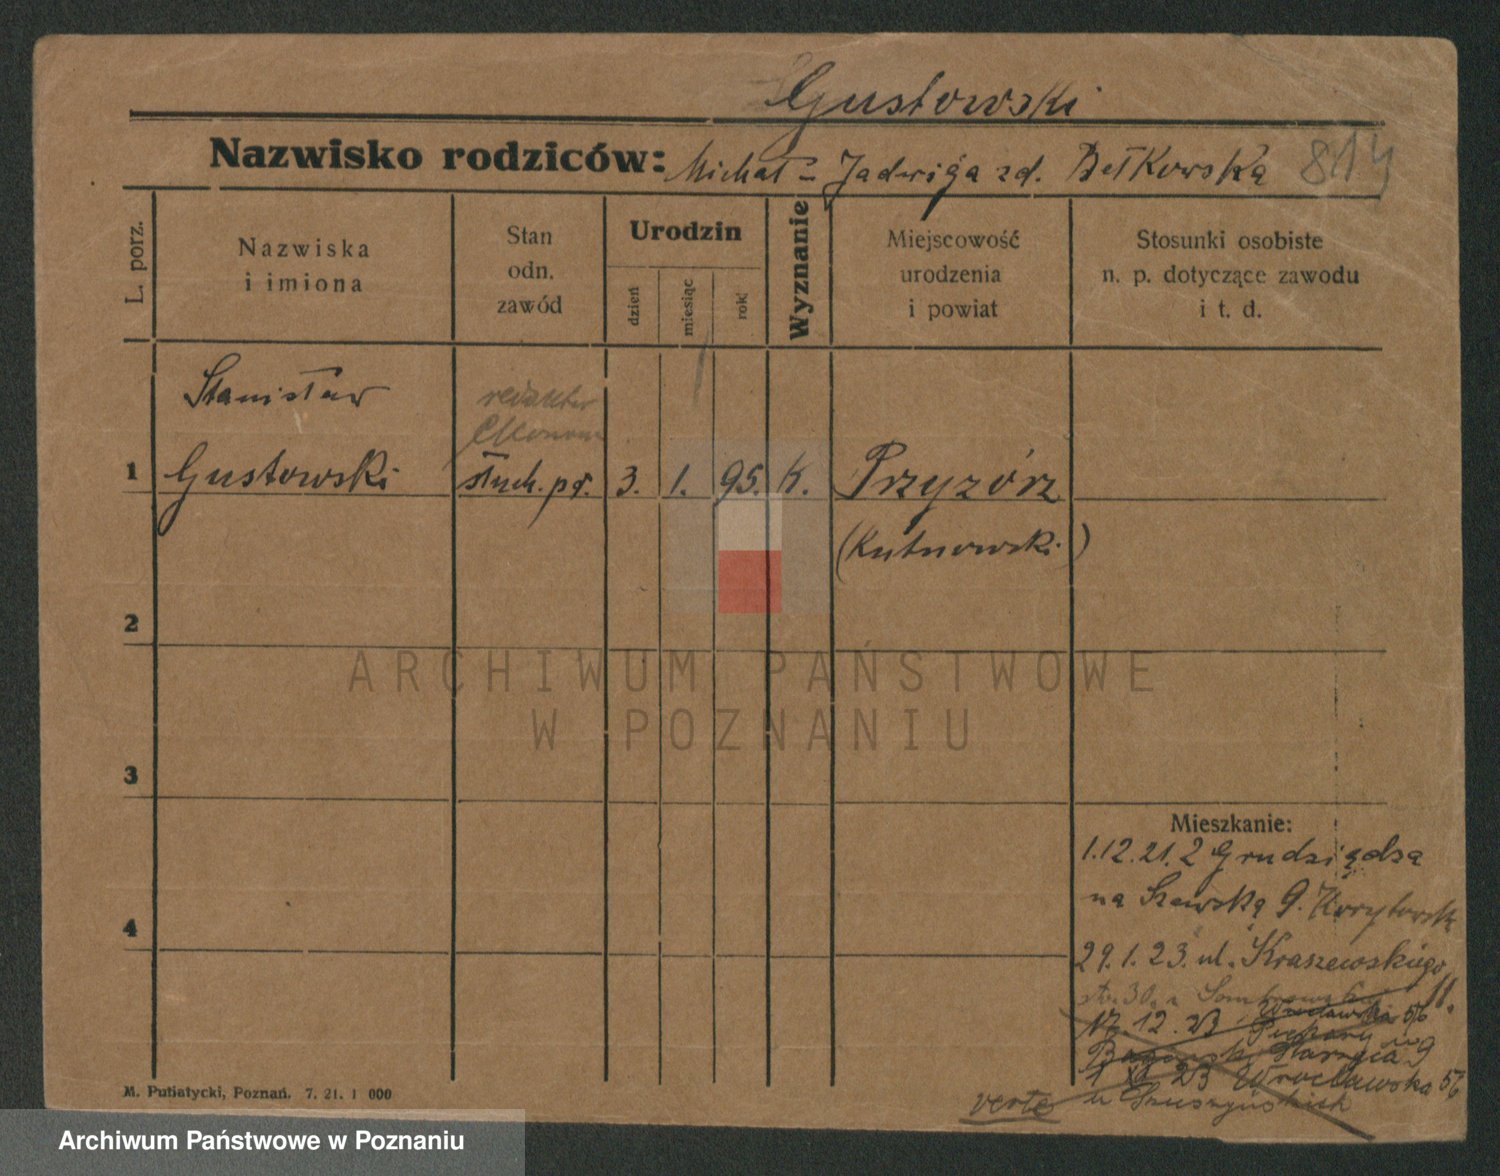 Gustowski
Nazwisko rodziców: Michał - Jadwiga zd. Bełkowska
L. porz.
Nazwiska
i imiona
Stan
odn.
zawód
Urodzin
dzień
miesiąc
rok
Wyznanie
Miejscowość
urodzenia
i powiat
Stosunki osobiste
n. p. dotyczące zawodu
i t. d.
Stanisław
redaktor
1 Gustowski słuch. 3. 1. 95. K. Przyzórz
(Kutnowski)
2
3
4
Mieszkanie:
1.12.21. z Grudziądza
na Szewską 9.
29.1.23. ul. Kraszewskiego 11.
str. 30.
Wrocławska 56
12.23 Piekary
9
1 XII 23 Wrocławska 56
verte u
M. Putiatycki, Poznań. 7. 21. 1 000
ARCHIWUM PAŃSTWOWE
W POZNANIU
Archiwum Państwowe w Poznaniu